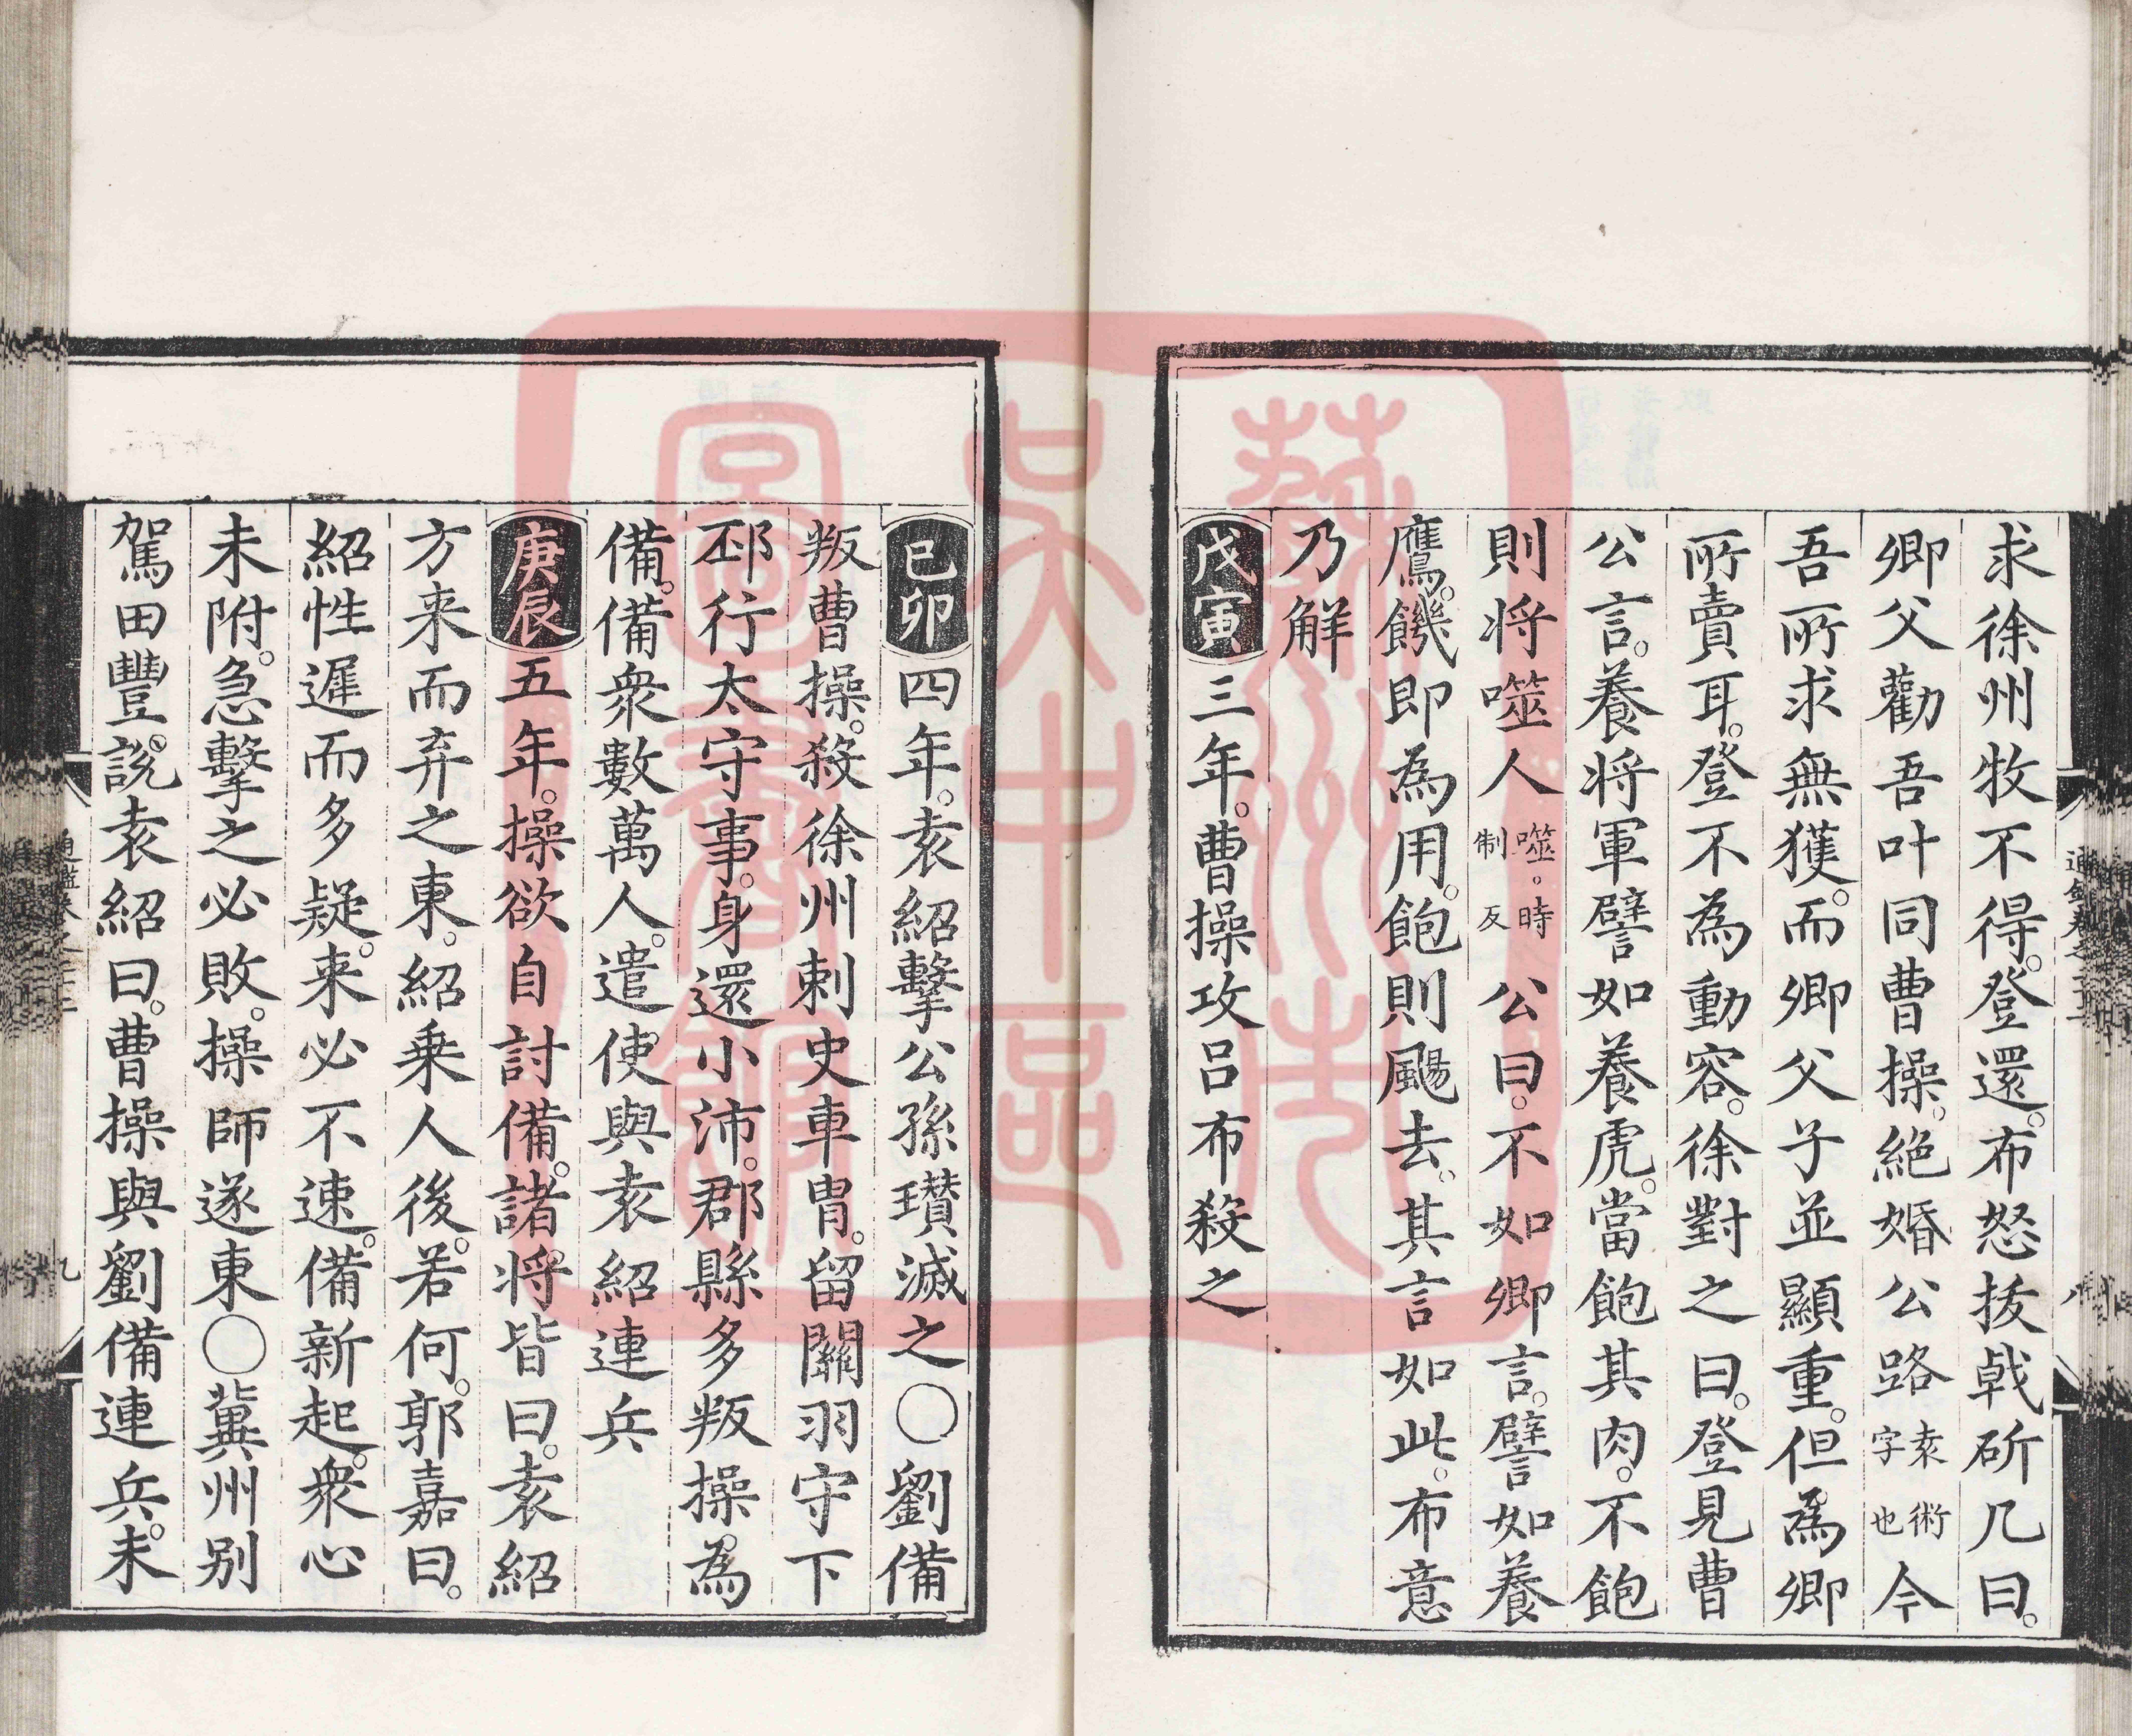 求徐州牧不得。登還。布怒拔戟斫几曰。
卿父勸吾叶同曹操。絶婚公路袁術字也今
吾所求無獲。而卿父子並顯重。但為卿
所賣耳。登不為動容。徐對之曰。登見曹
公言。養将軍譬如養虎。當飽其肉。不飽
則将噬人噬。時制反公曰。不如卿言。譬如養
鷹。饑即為用。飽則颺去。其言如此。布意
乃解
戊寅三年。曹操攻吕布殺之
己卯四年。袁紹擊公孫瓚滅之〇劉備
叛曹操。殺徐州刺史車胄。留關羽守下
邳行太守事。身還小沛。郡縣多叛操。為
備。備衆數萬人。遣使與袁紹連兵
庚辰五年。操欲自討備。諸将皆曰。袁紹
方来而弃之東。紹乗人後。若何。郭嘉曰。
紹性遲而多疑。来必不速。備新起。衆心
未附。急擊之必敗。操師遂東〇冀州别
駕田豐。說袁紹曰。曹操與劉備連兵。未
藝洲先
吴中區
圖書館